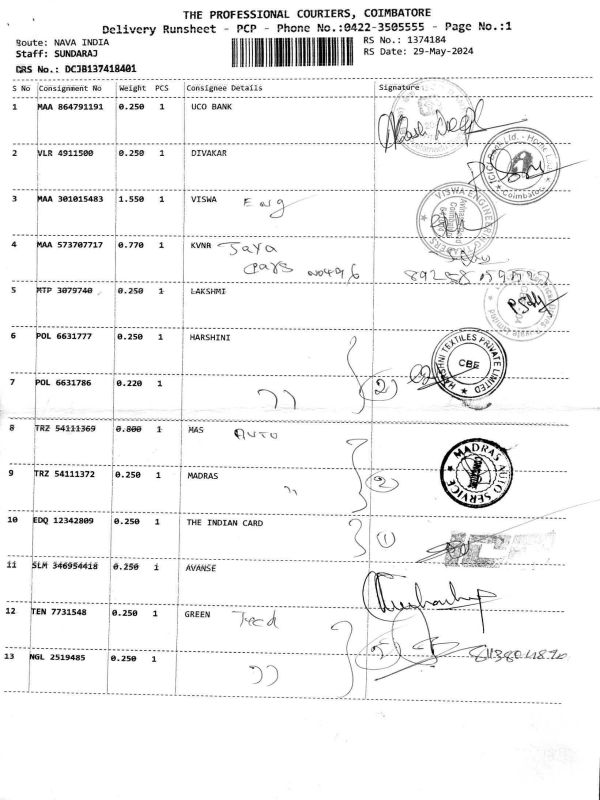 THE PROFESSIONAL COURIERS, COIMBATORE
Delivery Runsheet - PCP - Phone No.:0422-3505555 - Page No.:1
Route: NAVA INDIA RS No.: 1374184
Staff: SUNDARAJ RS Date: 29-May-2024
DRS No.: DCJB137418401
S No Consignment No Weight PCS Consignee Details Signature
1 MAA 864791191 0.250 1 UCO BANK
2 VLR 4911500 0.250 1 DIVAKAR
3 MAA 301015483 1.550 1 VISWA Eng
VISWA ENGINEERING
4 MAA 573707717 0.770 1 KVNR Jaya
cars
5 MTP 3079740 0.250 1 LAKSHMI
6 POL 6631777 0.250 1 HARSHINI
HARSHNI TEXTILES PRIVATE LIMITED
CBE
7 POL 6631786 0.220 1 " 2
8 TRZ 54111369 0.800 1 MAS AUTO
9 TRZ 54111372 0.250 1 MADRAS " 2
MADRAS AUTO SERVICE
10 EDQ 12342809 0.250 1 THE INDIAN CARD 1
11 SLM 346954418 0.250 1 AVANSE
12 TEN 7731548 0.250 1 GREEN
13 NGL 2519485 0.250 1 " 2